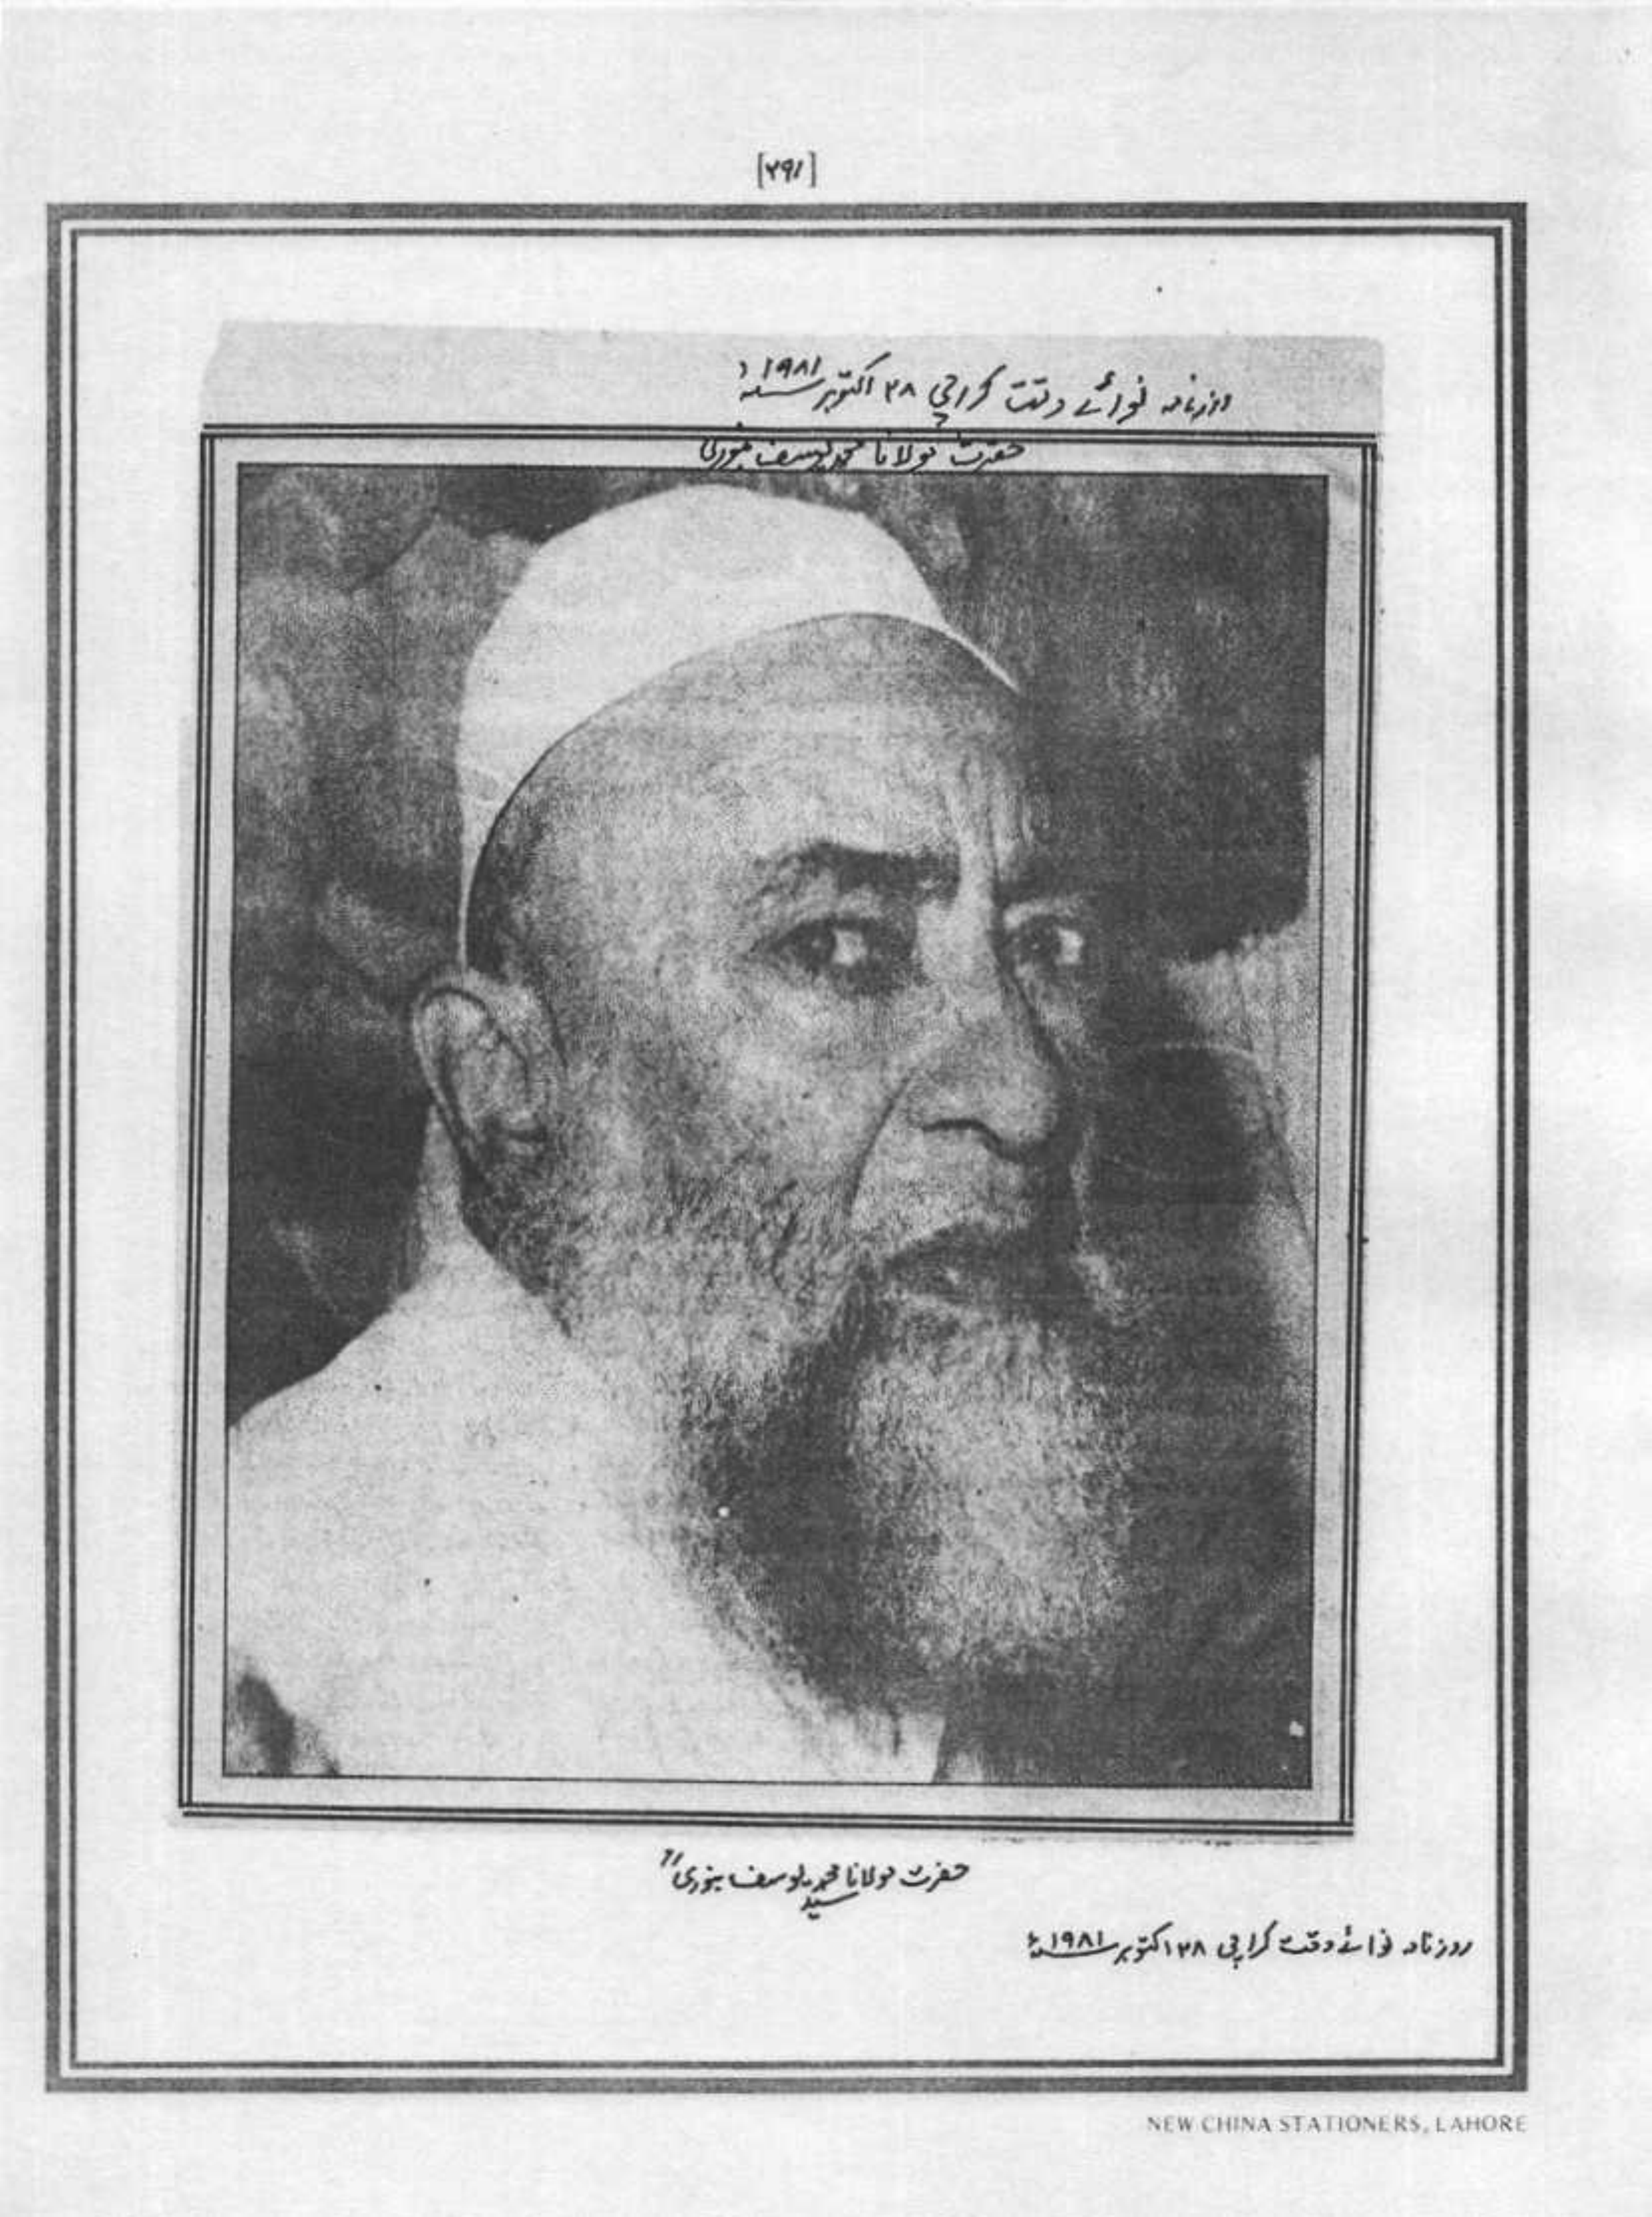 [۲۹۱]
روزنامہ نوائے وقت کراچی ۲۸ اکتوبر سنہ ۱۹۸۱ء
حضرت مولانا محمد یوسف بنوری
حضرت مولانا سید محمد یوسف بنوریؒ
روزنامہ نوائے وقت کراچی ۲۸ اکتوبر سنہ ۱۹۸۱ء
NEW CHINA STATIONERS, LAHORE